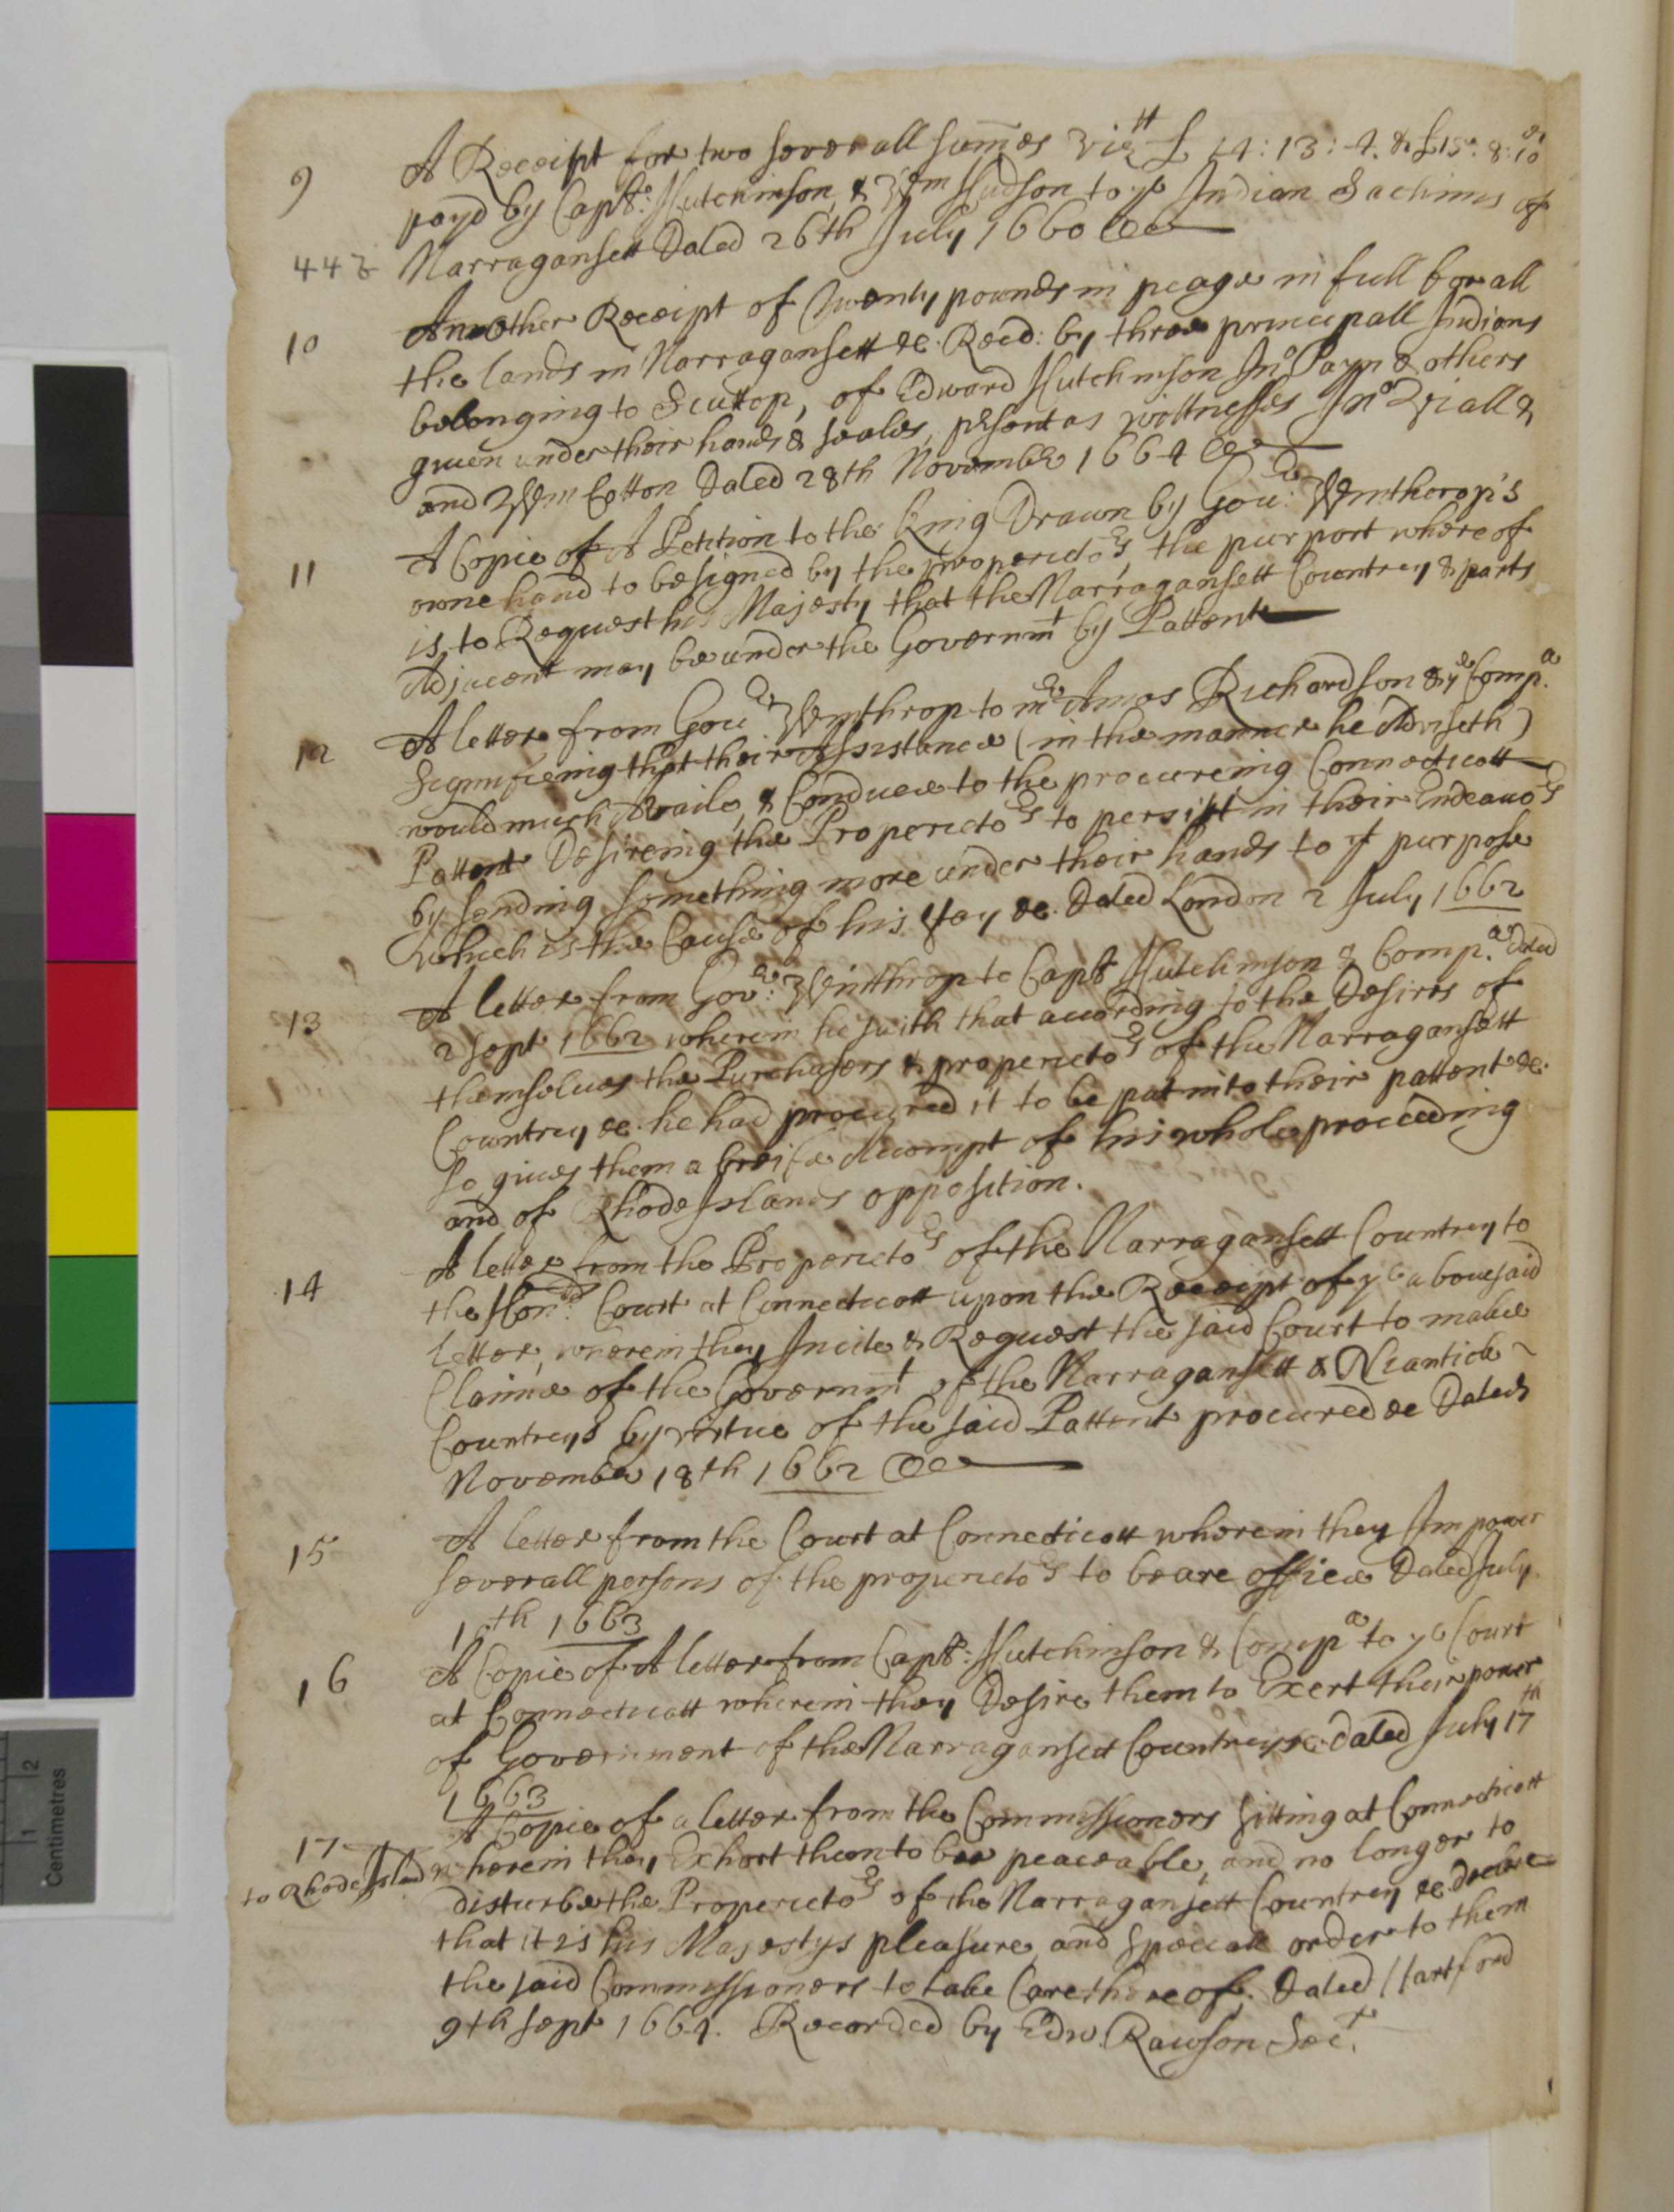 9 A Receipt for two severall sum̄es vizt £ 14:13:4. & £15: 8:10
payd by Capt: Hutchinson & Wm Hudson to ye Indian Sachims of
443 Narragansett Dated 26th July 1660 &c
10 Another Receipt of Twenty pounds in peage in full for all
the lands in Narragansett &c. Recd: by three principall Indians
belonging to Scuttop, of Edward Hutchinson Jno Payn & others
given under their hands & seales, psent as wittnesses Jno Viall &
and Wm Cotton Dated 28th Novembr 1664 &c
11 A Copie of A Petition to the King Drawn by Gour: Winthrop's
owne hand to be signed by the properietors, the purport whereof
is, to Request his Majesty that the Narragansett Countrey & parts
Adjacent may be under the Governmt by Pattent
12 A letter from Gour Winthrop to mr Amos Richardson & ye Compa:
Signifieing that their Assistance (in the manner he Adviseth)
would much Availe, & Conduce to the procureing Connecticott
Pattent Desireing the Properietors to persist in their Endeauors
by sending something more under their hands to yt purpose
which is the Cause of his stay &c. Dated London 2 July 1662
13 A letter from Govr: Winthrop to Capt Hutchinson & Compa: dated
2 Sept 1662 wherein he saith that according to the Desires of
themselues the Purchasers & properietors of the Narragansett
Countrey &c. he had procured it to be put into their pattent &c.
so giues them a breife Accompt of his whole proceeding
and of Rhode Islands opposition.
14 A letter from the Properietors of the Narragansett Countrey to
the Honrd: Court at Connecticott upon the Receipt of ye abouesaid
letter, wherein they Incite & Request the said Court to make
Claime of the Governmt of the Narragansett & Niantick
Countreys by virtue of the said Pattent procured &c Dated
November 18th 1662 &c
15 A letter from the Court at Connecticott wherein they Impower
severall persons of the properietors to beare office Dated July
1 th 1663
16 A Copie of A letter from Capt: Hutchinson & Compa to ye Court
at Connecticott wherein they Desire them to Exert their power
of Government of the Narragansett Countrey &c. dated July 17th
1663
17 A Copie of a letter from the Commissioners sitting at Connecticott
to Rhode Island wherein they Exhort them to bee peaceable, and no longer to
disturbe the Properietors of the Narragansett Countrey &c. declare
that it is his Majestys pleasure and speciall order to them
the said Commissioners to take Care thereof. Dated Hartford
9th Sept 1664. Recorded by Edw. Rawson Secr.
Centimetres
1 2